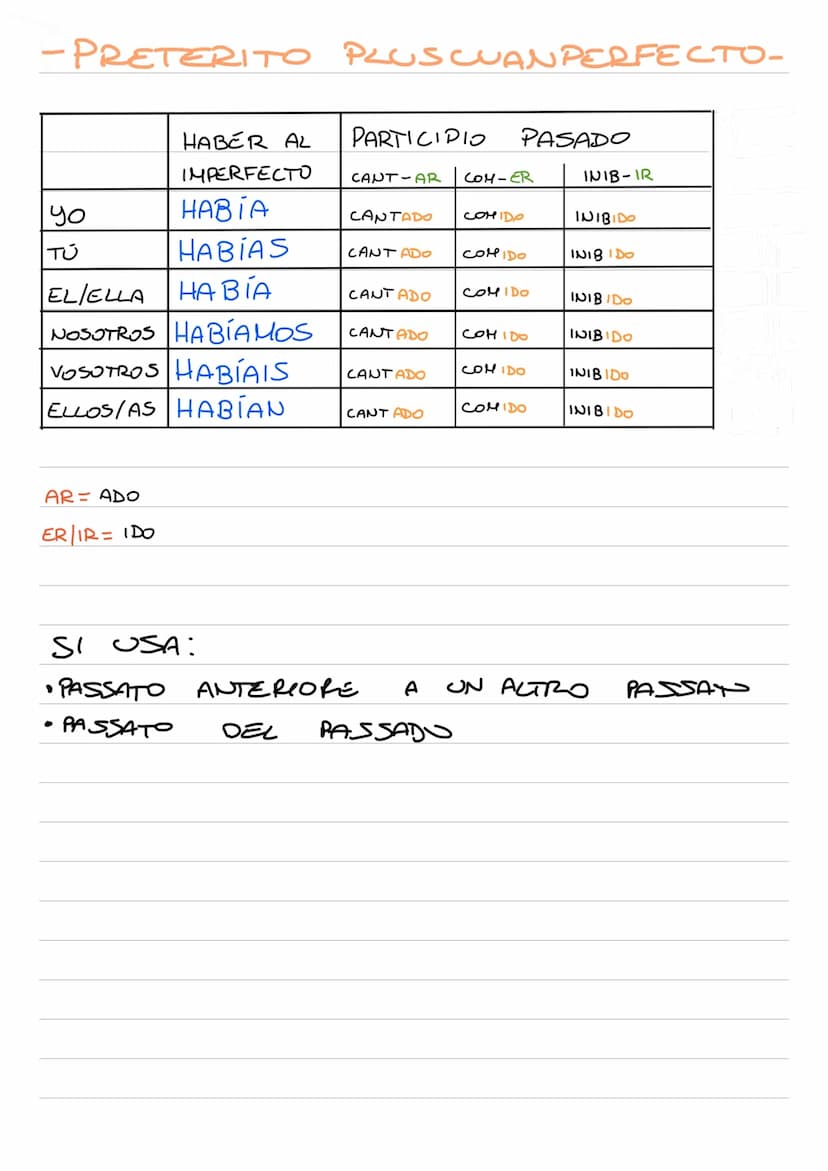 - PRETERITO PLUSCUANPERFECTO -
HABER AL IMPERFECTO PARTICIPIO PASADO
CANT-AR COM-ER INIB-IR
YO HABÍA CANTADO COMIDO INIBIDO
TÚ HABÍAS CANTADO COMIDO INIBIDO
EL/ELLA HABÍA CANTADO COMIDO INIBIDO
NOSOTROS HABÍAMOS CANTADO COMIDO INIBIDO
VOSOTROS HABÍAIS CANTADO COMIDO INIBIDO
ELLOS/AS HABÍAN CANTADO COMIDO INIBIDO
AR = ADO
ER/IR = IDO
SI USA:
• PASSATO ANTERIORE A UN ALTRO PASSATO
• PASSATO DEL PASSADO